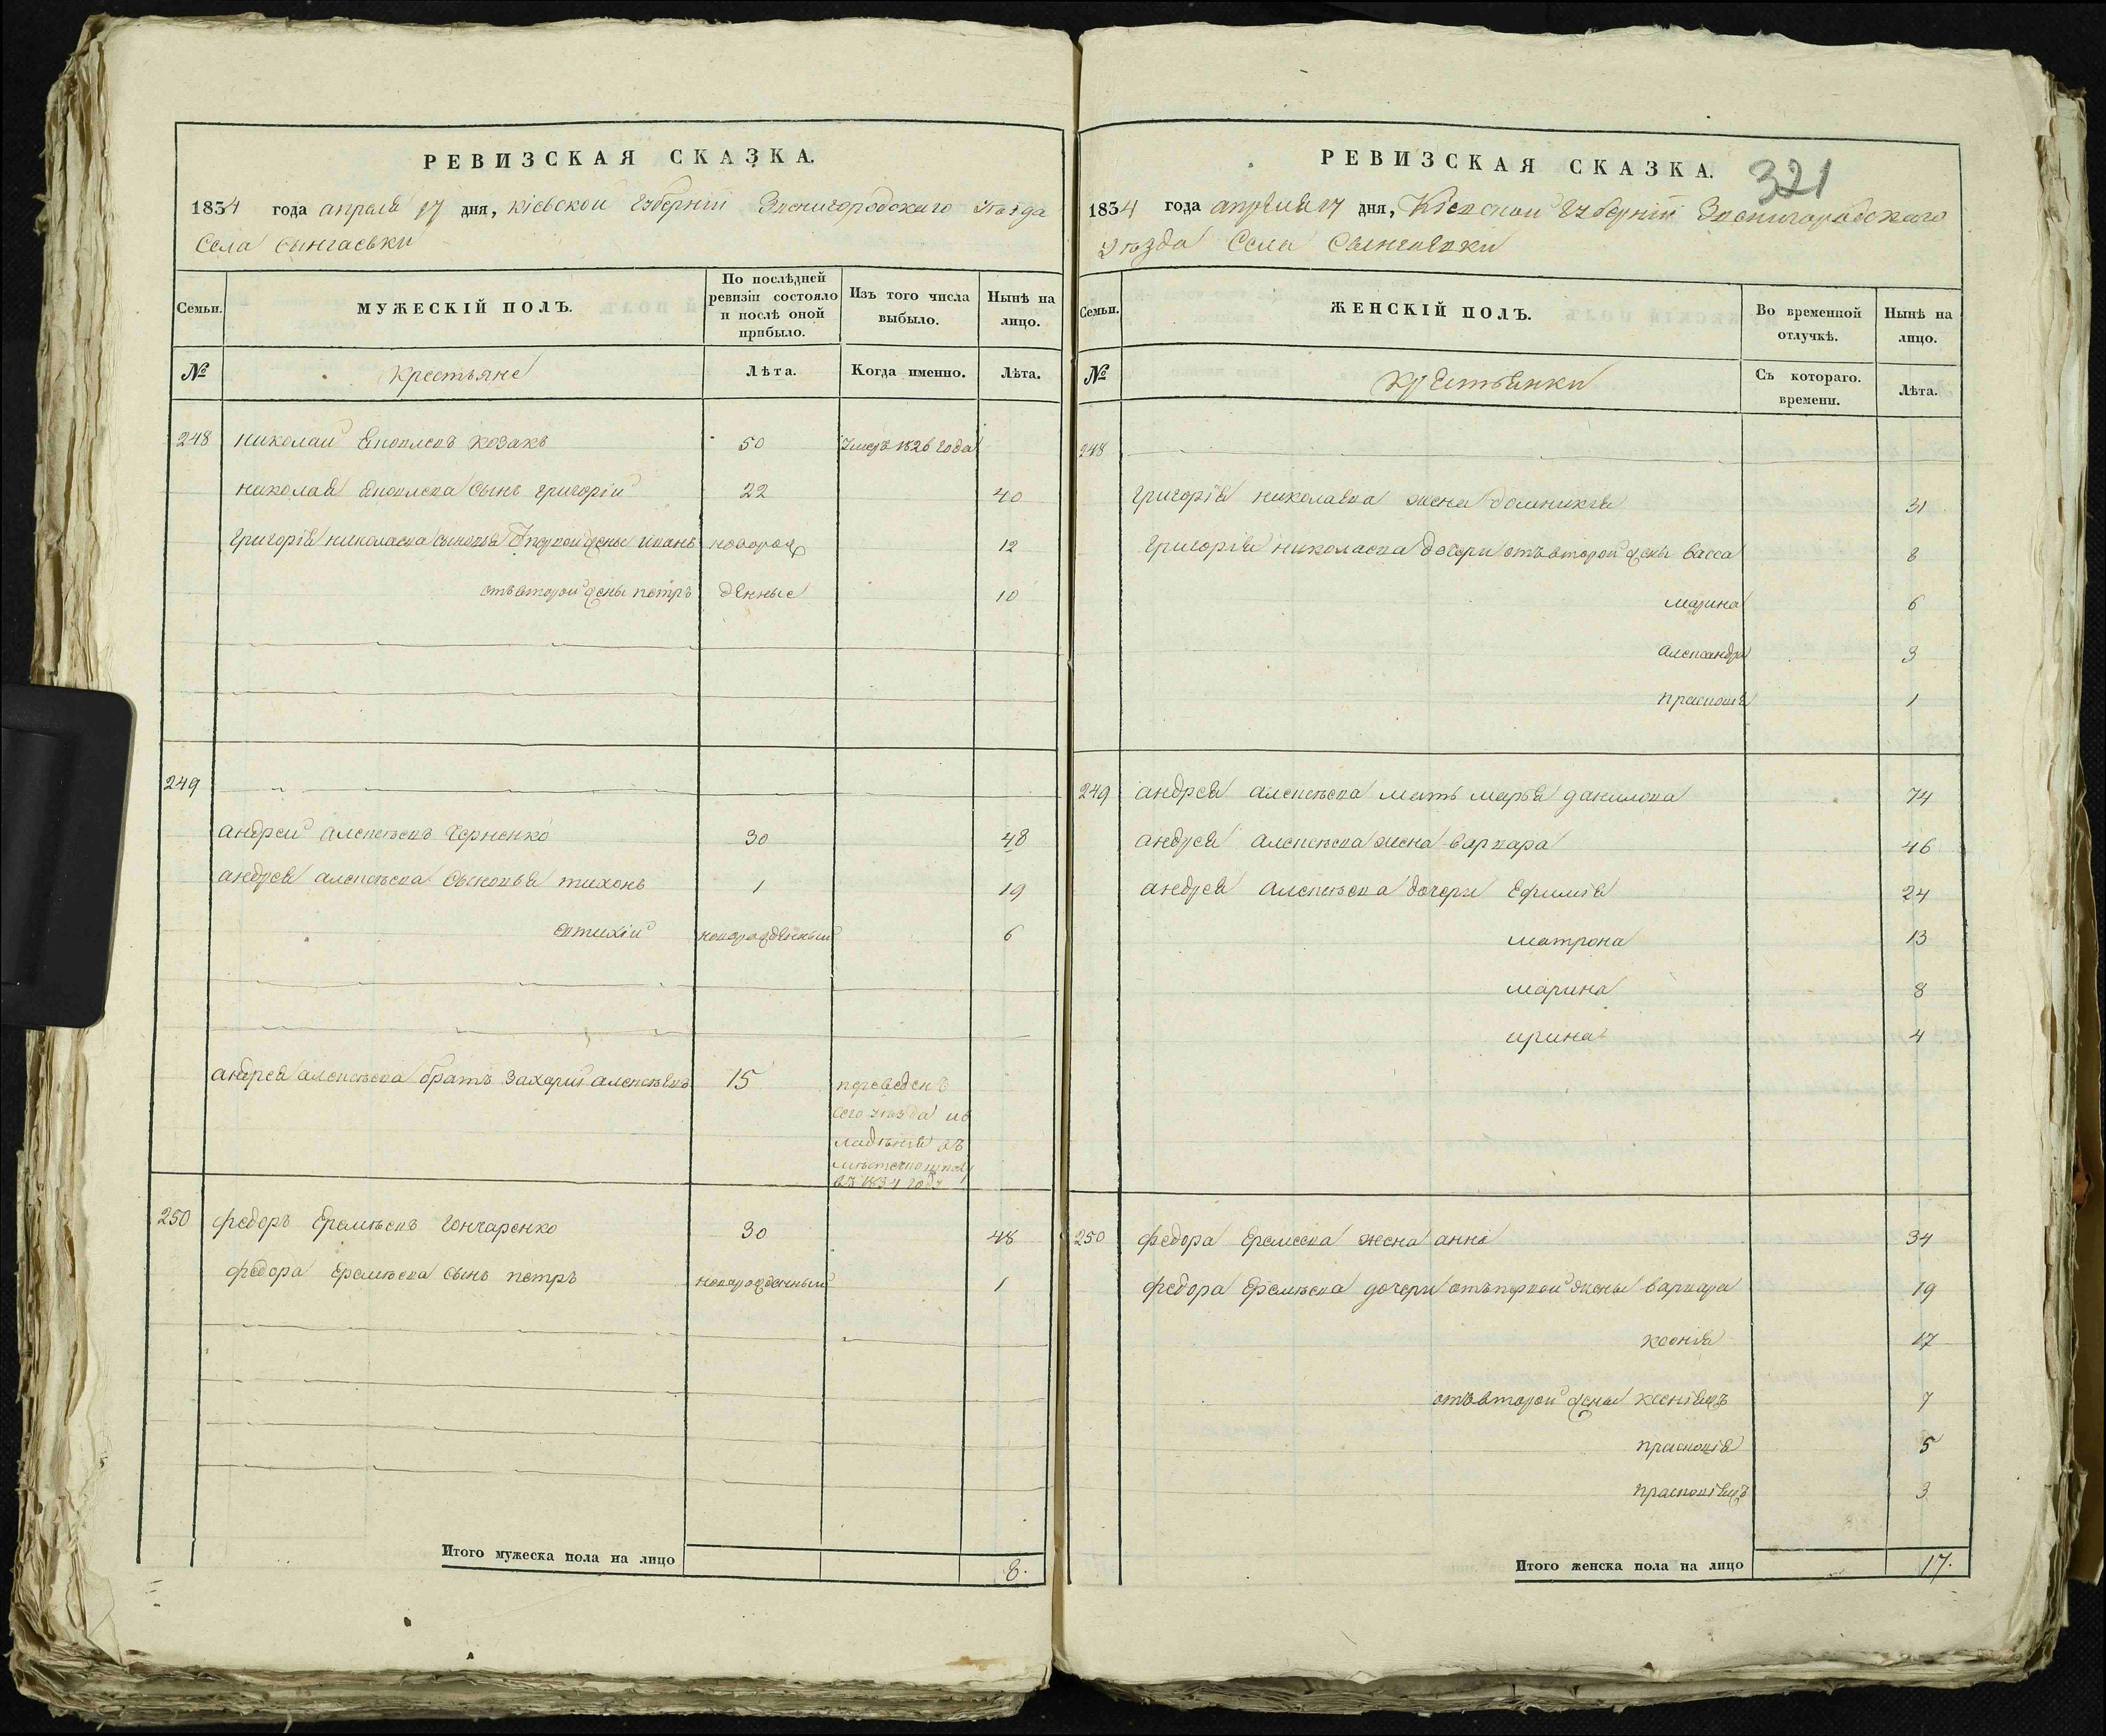 РЕВИЗСКАЯ СКАЗКА.
1834 года апреля 17 дня, кіевской губерніи Звенигородскаго уезда
Села
Семьи.
МУЖЕСКІЙ ПОЛЪ.
По послѣдней ревизіи состояло и послѣ оной прибыло.
Изъ того числа выбыло.
Нынѣ на лицо.
№ Крестьяне Лѣта. Когда именно. Лѣта.
248 николай козакъ 50 умеръ 1826 года
николая сынъ григорій 22 40
григорія николаева сыновья первой жены иванъ новорож 12
отъ второй жены петръ денные 10
249
андрей алексѣевъ Черненко 30 48
андрея алексѣева сыновья тихонъ 1 19
новорожденный 6
андрея алексѣева братъ захарий алексѣевъ 15 переведенъ
сего уѣзда
въ 1834 году
250 федоръ еремѣевъ гончаренко 30 48
федора еремѣева сынъ петръ новорожденный 1
Итого мужеска пола на лицо 8.
РЕВИЗСКАЯ СКАЗКА. 321
1834 года апреля 17 дня, Кіевской губерніи Звенигородскаго
уѣзда Села
Семьи.
ЖЕНСКІЙ ПОЛЪ.
Во временной отлучкѣ.
Нынѣ на лицо.
№ крестьянки Съ котораго. времени. Лѣта.
248
григорія николаева жена домникія 31
григорія николаева дочери отъ второй жены васса 8
марина 6
александра 3
1
249 андрея алексѣева мать марья данилова 74
андрея алексѣева жена варвара 46
андрея алексѣева дочери ефимія 24
матрона 13
марина 8
ирина 4
250 федора еремеева жена анна 34
федора еремѣева дочери отъ первой жены варвара 19
ксенія 17
отъ второй жены 7
прасковія 5
3
Итого женска пола на лицо 17.